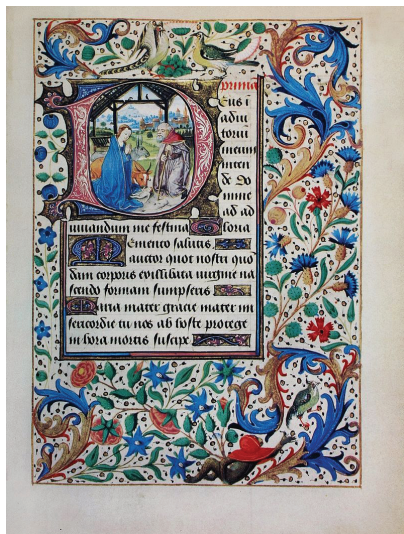 prima
eus i
adiu
toriū
meum
inten
de Do
mine
ad ad
iuuandum me festina Gloria
Memento salutis
auctor quod nostri quo
dam corporis ex illibata uirgine na
scendo formam sumpseris
Maria mater gracie mater mi
sericordie tu nos ab hoste protege
in hora mortis suscipe